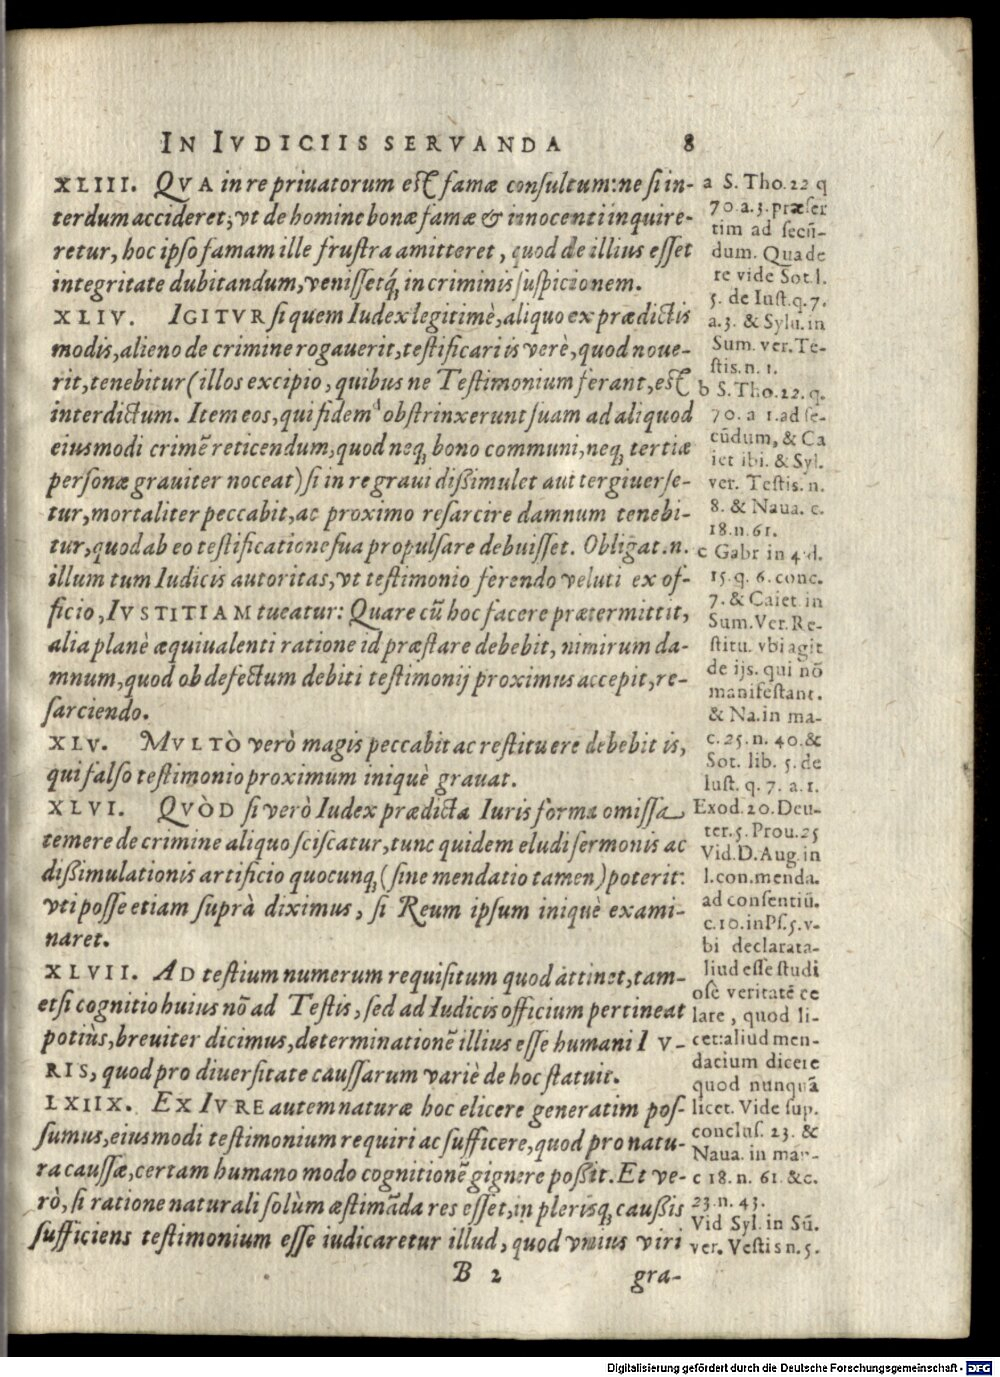 IN IVDICIIS SERVANDA 8
XLIII. QVA in re priuatorum est famæ consultum: ne si in-
terdum accideret, vt de homine bonæ famæ & innocenti inquire-
retur, hoc ipso famam ille frustra amitteret, quod de illius esset
integritate dubitandum, venissetq́; in criminis suspicionem.
XLIV. IGITVR si quem Iudex legitimè, aliquo ex prædictis
modis, alieno de crimine rogauerit, testificari is verè, quod noue-
rit, tenebitur (illos excipio, quibus ne Testimonium ferant, est
interdictum. Item eos, qui fidem obstrinxerunt suam ad aliquod
eiusmodi crimẽ reticendum, quod neq; bono communi, neq; tertiæ
personæ grauiter noceat) si in re graui dißimulet aut tergiuerse-
tur, mortaliter peccabit, ac proximo resarcire damnum tenebi-
tur, quod ab eo testificatione sua propulsare debuisset. Obligat. n.
illum tum Iudicis autoritas, vt testimonio ferendo veluti ex of-
ficio, IVSTITIAM tueatur: Quare cũ hoc facere prætermittit,
alia planè æquiualenti ratione id præstare debebit, nimirum da-
mnum, quod ob defectum debiti testimonij proximus accepit, re-
sarciendo.
XLV. MVLTÒ verò magis peccabit ac restituere debebit is,
qui falso testimonio proximum iniquè grauat.
XLVI. QVÒD si verò Iudex prædicta Iuris forma omissa
temere de crimine aliquo sciscatur, tunc quidem eludi sermonis ac
dißimulationis artificio quocunq; (sine mendatio tamen) poterit:
vti posse etiam suprà diximus, si Reum ipsum iniquè exami-
naret.
XLVII. AD testium numerum requisitum quod attinet, tam-
etsi cognitio huius nõ ad Testis, sed ad Iudicis officium pertineat
potiùs, breuiter dicimus, determinationẽ illius esse humani I V-
RIS, quod pro diuersitate caussarum variè de hoc statuit.
LXIIX. EX IVRE autem naturæ hoc elicere generatim pos-
sumus, eiusmodi testimonium requiri ac sufficere, quod pro natu-
ra caussæ, certam humano modo cognitionẽ gignere poßit. Et ve-
rò, si ratione naturali solùm æstimãda res esset, in plerisq; caußis
sufficiens testimonium esse iudicaretur illud, quod vnius viri
B 2 gra-
a S. Tho. 22 q
70. a. 3. præser
tim ad secũ-
dum. Qua de
re vide Sot. l.
5. de Iust. q. 7.
a. 3. & Sylu. in
Sum. ver. Te-
stis. n. 1.
b S. Tho. 22. q.
70. a 1. ad se-
cũdum, & Ca
iet ibi. & Syl.
ver. Testis. n.
8. & Naua. c.
18. n. 61.
c Gabr in 4 d.
15. q. 6. conc.
7. & Caiet in
Sum. Ver. Re-
stitu. vbi agit
de ijs. qui nõ
manifestant.
& Na. in ma-
c. 25. n. 40. &
Sot. lib. 5. de
Iust. q. 7. a. 1.
Exod. 20. Deu-
ter. 5. Prou. 25
Vid. D. Aug. in
l. con. menda.
ad consentiũ.
c. 10. in Ps. 5. v-
bi declarat a-
liud esse studi
osè veritatẽ ce
lare, quod li-
cet: aliud men-
dacium dicere
quod nunquã
licet. Vide sup.
conclus. 23. &
Naua. in man-
c 18. n. 61. & c.
23. n. 43.
Vid Syl. in Sũ.
ver. Vestis n. 5.
Digitalisierung gefördert durch die Deutsche Forschungsgemeinschaft - DFG